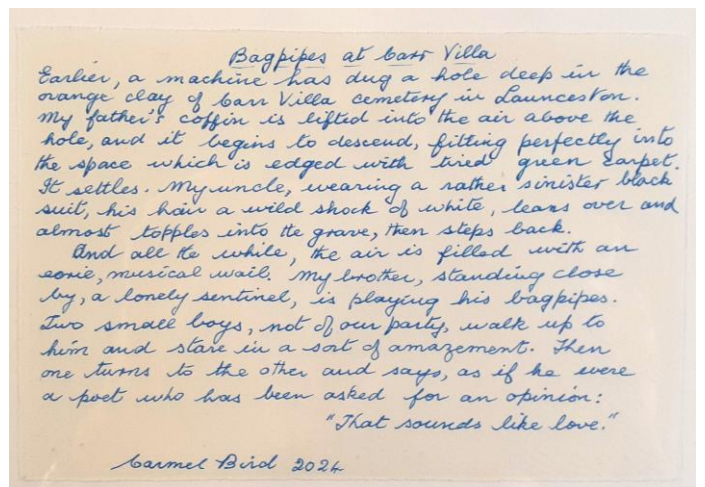 Bagpipes at Carr Villa
Earlier, a machine has dug a hole deep in the
orange clay of Carr Villa cemetery in Launceston.
My father's coffin is lifted into the air above the
hole, and it begins to descend, fitting perfectly into
the space which is edged with tired green carpet.
It settles. My uncle, wearing a rather sinister black
suit, his hair a wild shock of white, leans over and
almost topples into the grave, then steps back.
And all the while, the air is filled with an
eerie, musical wail. My brother, standing close
by, a lonely sentinel, is playing his bagpipes.
Two small boys, not of our party, walk up to
him and stare in a sort of amazement. Then
one turns to the other and says, as if he were
a poet who has been asked for an opinion:
"That sounds like love."
Carmel Bird 2024